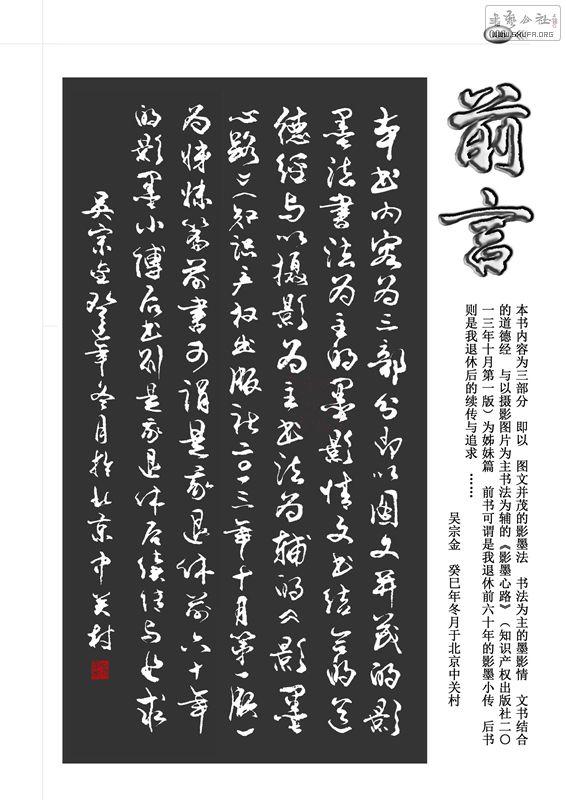 书艺公社
WWW.SHUFA.ORG
前言
本书内容为三部分 即以 图文并茂的影墨法 书法为主的墨影情 文书结合
的道德经 与以摄影图片为主书法为辅的《影墨心路》（知识产权出版社二〇
一三年十月第一版）为姊妹篇 前书可谓是我退休前六十年的影墨小传 后书
则是我退休后的续传与追求 ……
吴宗金 癸巳年冬月于北京中关村
本书内容为三部分即以图文并茂的影
墨法書法为主的墨影情文书结合的道
德经与以摄影为主书法为辅的《影墨
心路》（知识产权出版社二〇一三年十月第一版）
为姊妹篇前書可谓是我退休前六十年
的影墨小傳后书则是我退休后续传与追求
吴宗金癸巳年冬月於北京中关村